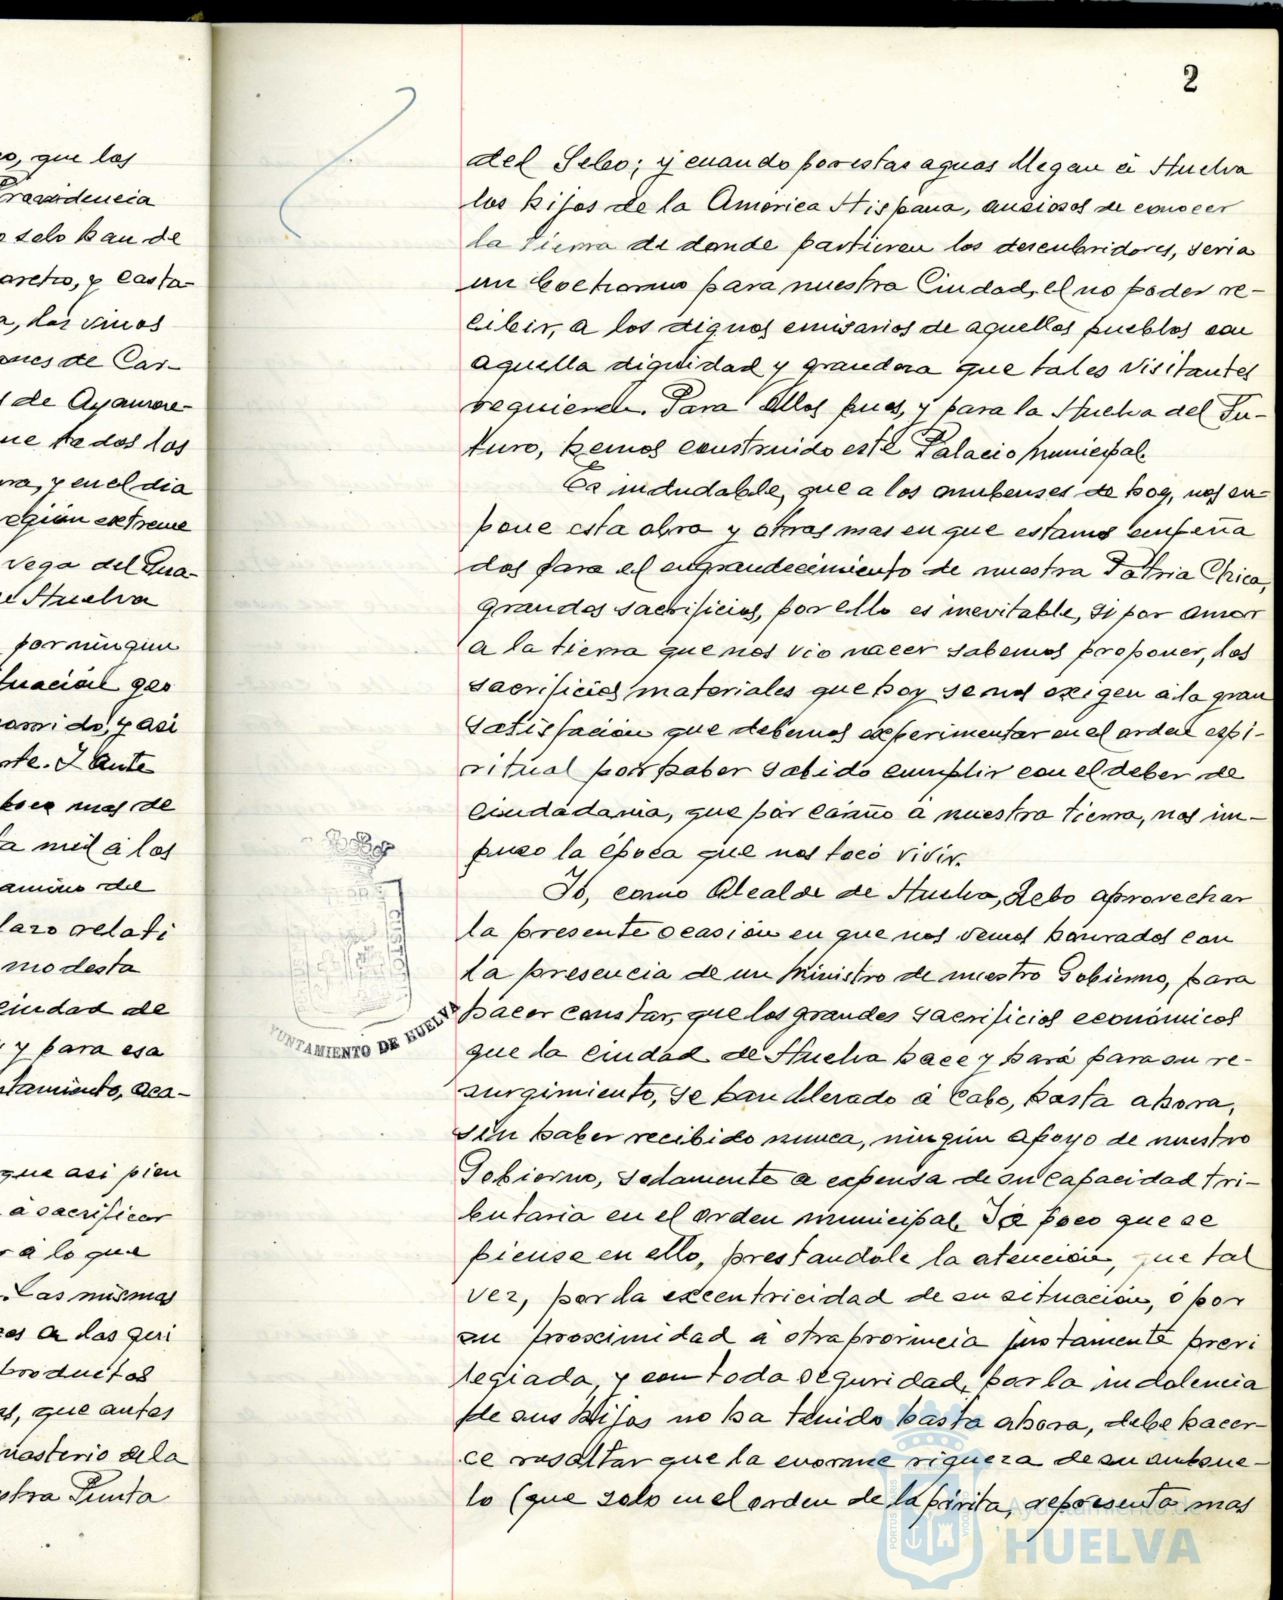 2
o, que los
Providencia
o solo han de
aretro, y casta-
a, los vinos
ones de Car-
s de Ayamon-
ue todos los
ra, y en el dia
egión extreme
vega del Gua-
e Huelva
por ningun
tuación geo
arrido, y asi
rte. Y ante
poco mas de
a mil á los
amino del
lazo relati
modesta
ciudad de
y para esa
ntamiento, aca-
que asi pien
á sacrificar
r á lo que
. Las mismas
os a las qui
productos
as, que antes
nasterio de la
stra Punta
del Sebo; y cuando por estas aguas llegan á Huelva
los hijos de la América Hispana, ansiosos de conocer
la tierra de donde partieron los descubridores, seria
un bochorno para nuestra Ciudad, el no poder re-
cibir, a los dignos emisarios de aquellos pueblos con
aquella dignidad y grandeza que tales visitantes
requieren. Para ellos pues, y para la Huelva del Fu-
turo, hemos construido este Palacio Municipal.
Es indudable, que a los onubenses de hoy, nos im-
pone esta obra y otras mas en que estamos empeña
dos para el engrandecimiento de nuestra Patria Chica,
grandes sacrificios, por ello es inevitable, si por amor
a la tierra que nos vio nacer sabemos proponer, los
sacrificios materiales que hoy se nos exigen á la gran
satisfación que debemos experimentar en el orden espi-
ritual por haber sabido cumplir con el deber de
ciudadania, que por cariño á nuestra tierra, nos im-
puso la época que nos tocó vivir.
Yo, como Alcalde de Huelva, debo aprovechar
la presente ocasión en que nos vemos honrados con
la presencia de un Ministro de nuestro Gobierno, para
hacer constar, que los grandes sacrificios económicos
que la ciudad de Huelva hace y hará para su re-
surgimiento, se han llevado á cabo, hasta ahora,
sin haber recibido nunca, ningún apoyo de nuestro
Gobierno, solamente a expensa de su capacidad tri-
butaria en el orden municipal. Y a poco que se
piense en ello, prestandole la atención, que tal
vez, por la excentricidad de su situación, ó por
su proximidad á otra provincia justamente previ
legiada, y con toda seguridad, por la indolencia
de sus hijos no ha tenido hasta ahora, debe hacer-
ce resaltar que la enorme riqueza de su subsue-
lo (que solo en el orden de la pirita, representa mas
AYUNTAMIENTO DE HUELVA
Ayuntamiento de
HUELVA